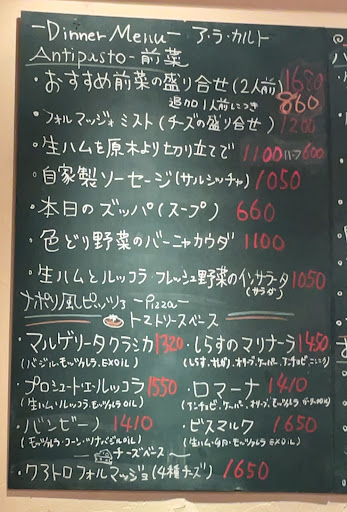 -Dinner Menu- ア・ラ・カルト
Antipasto-前菜
・おすすめ前菜の盛り合せ(2人前)1680
追加1人前につき 860
・フォルマッジォミスト(チーズの盛り合せ)1200
・生ハムを原木より切り立てで 1100 ハーフ600
・自家製ソーセージ(サルシッチャ)1050
・本日のズッパ(スープ) 660
・色どり野菜のバーニャカウダ 1100
・生ハムとルッコラ フレッシュ野菜のインサラータ 1050
(サラダ)
ナポリ風ピッツァ -Pizza-
トマトソースベース
・マルゲリータクラシカ1320
(バジル・モッツァレラ、EXOIL)
・しらすのマリナーラ 1450
・プロシュートエ・ルッコラ 1550
(生ハム・ルッコラ、モッツァレラ OIL)
・ロマーナ 1410
・バンビーノ 1410
(モッツァレラ・コーン・ツナ・バジルOIL)
・ビスマルク 1650
(生ハム・タマゴ・モッツァレラ・EXOIL)
チーズベース
・クアトロフォルマッジョ(4種チーズ) 1650